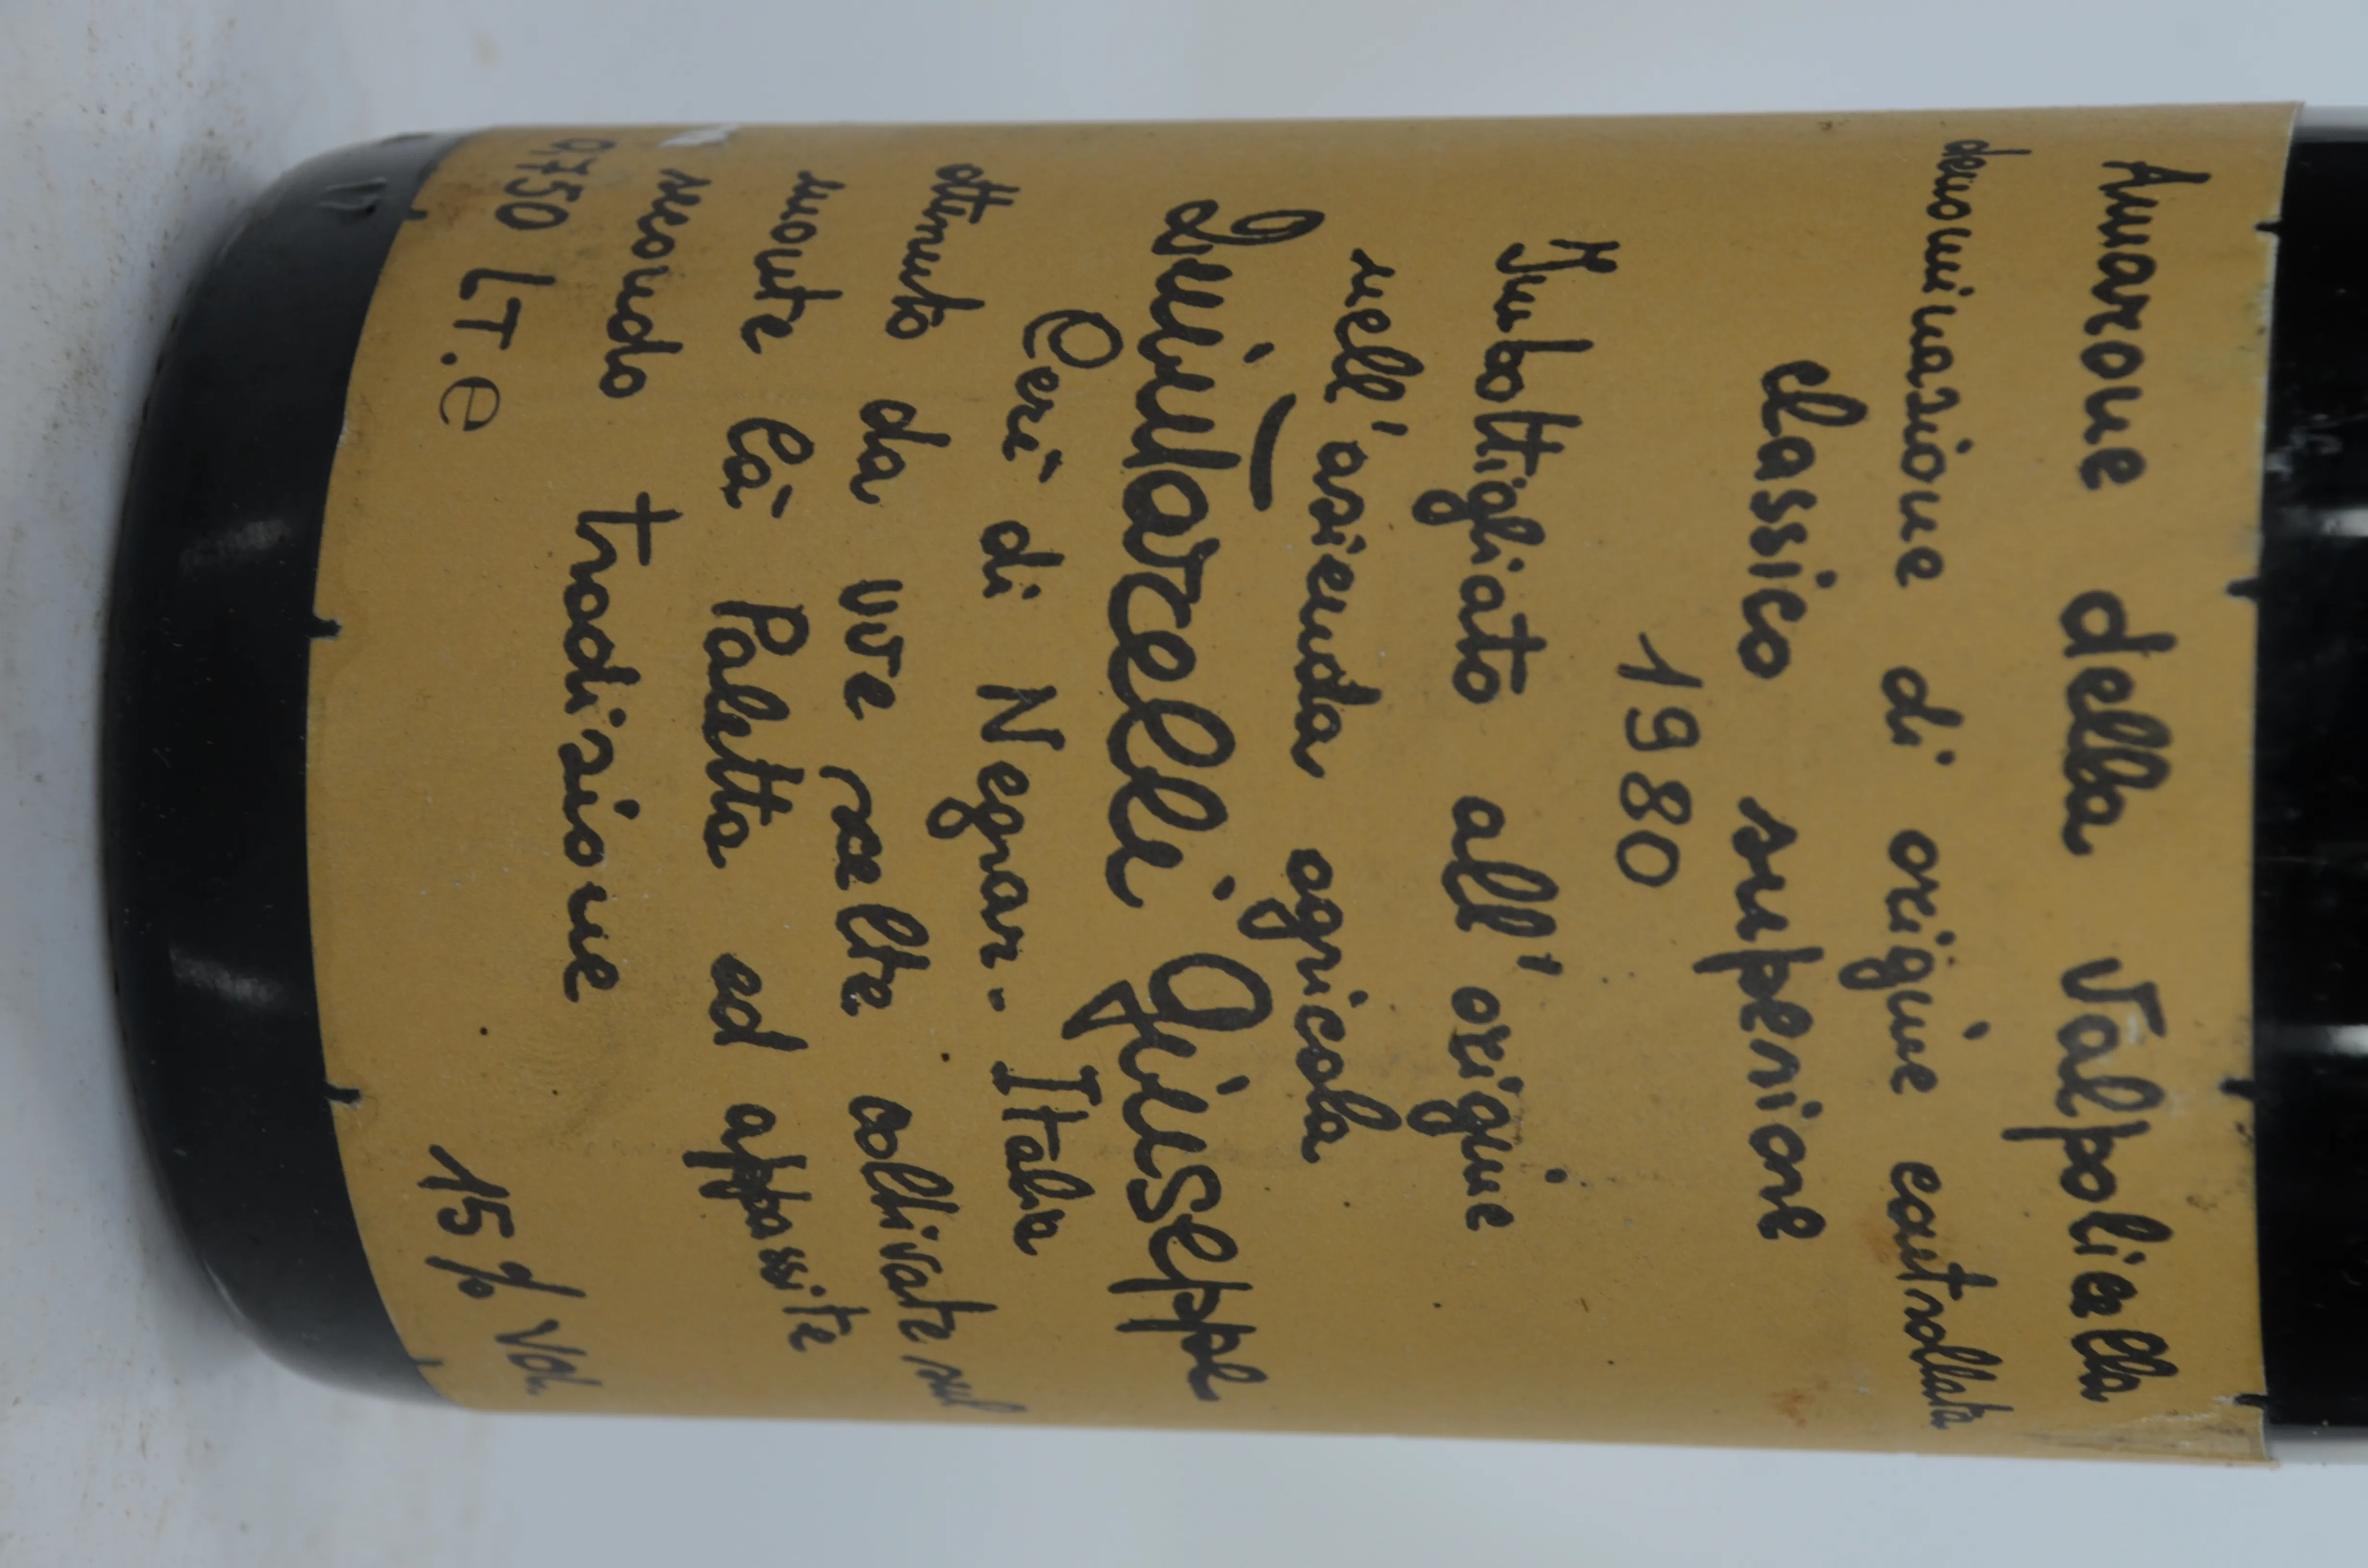 Amarone della Valpolicella
denominazione di origine controllata
classico superiore
1980
Imbottigliato all'origine
nell'azienda agricola
Quintarelli Giuseppe
Cerè di Negrar - Italia
ottenuto da uve scelte coltivate sul
monte Cà Paletta ed appassite
secondo tradizione
0,750 LT. e 15% Vol.